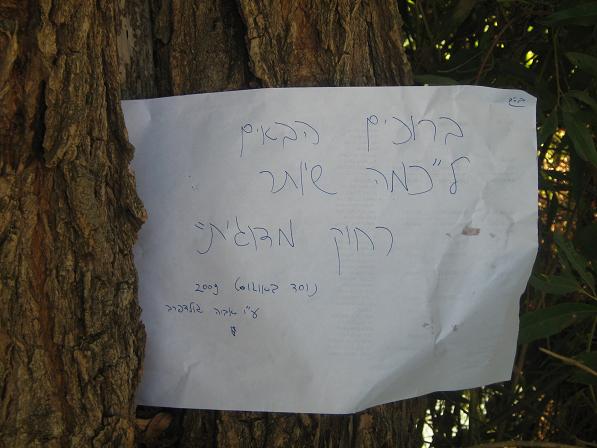 בס"ד
ברוכים הבאים
ל"כמה שיותר
רחוק מדוגית"
נוסד באוגוסט 2009
ע"י אביה גולדפרב